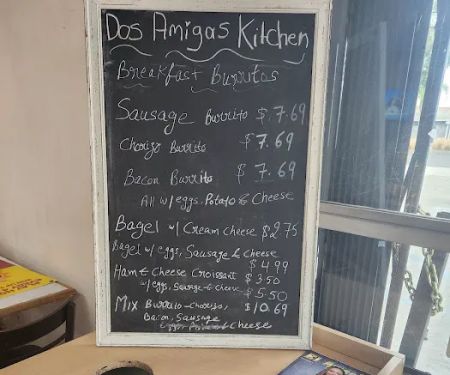 Dos Amigas Kitchen
Breakfast Burritos
Sausage Burrito $.7.69
Chorizo Burrito $7.69
Bacon Burrito $7.69
All w/eggs, Potato & Cheese
Bagel w/ Cream Cheese $2.75
Bagel w/ eggs, Sausage & Cheese
$4.99
Ham & Cheese Croissant $3.50
w/ eggs, Sausage & Cheese $5.50
Mix Burrito - Chorizo, $10.69
Bacon, Sausage
Eggs, Potato & Cheese